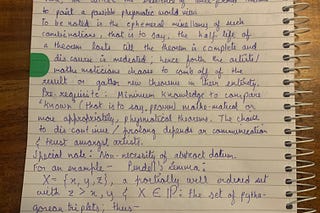 to paint a possible pragmatic world view.
To be noted is the ephemeral miscellany of such
combinations, that is to say, the half life of
a theorem lasts till the theorem is complete and
discourse is mediated, hence forth the artists/
mathematicians choose to comb off of the
result or gather new theorems in their entirety.
Pre-requisite: Minimum knowledge to compare
"known" (that is to say, proven) mathematical or
more appropriately, physmatical theorems. The choice
to discontinue / prolong depends on communication
& trust amongst artists.
Special note: Non-necessity of abstract datum.
For an example – Lemma:
X = {x, y, z}, a partially well ordered set
with z > x, y & X ∈ P: the set of Pytha-
gorean triplets; thus –